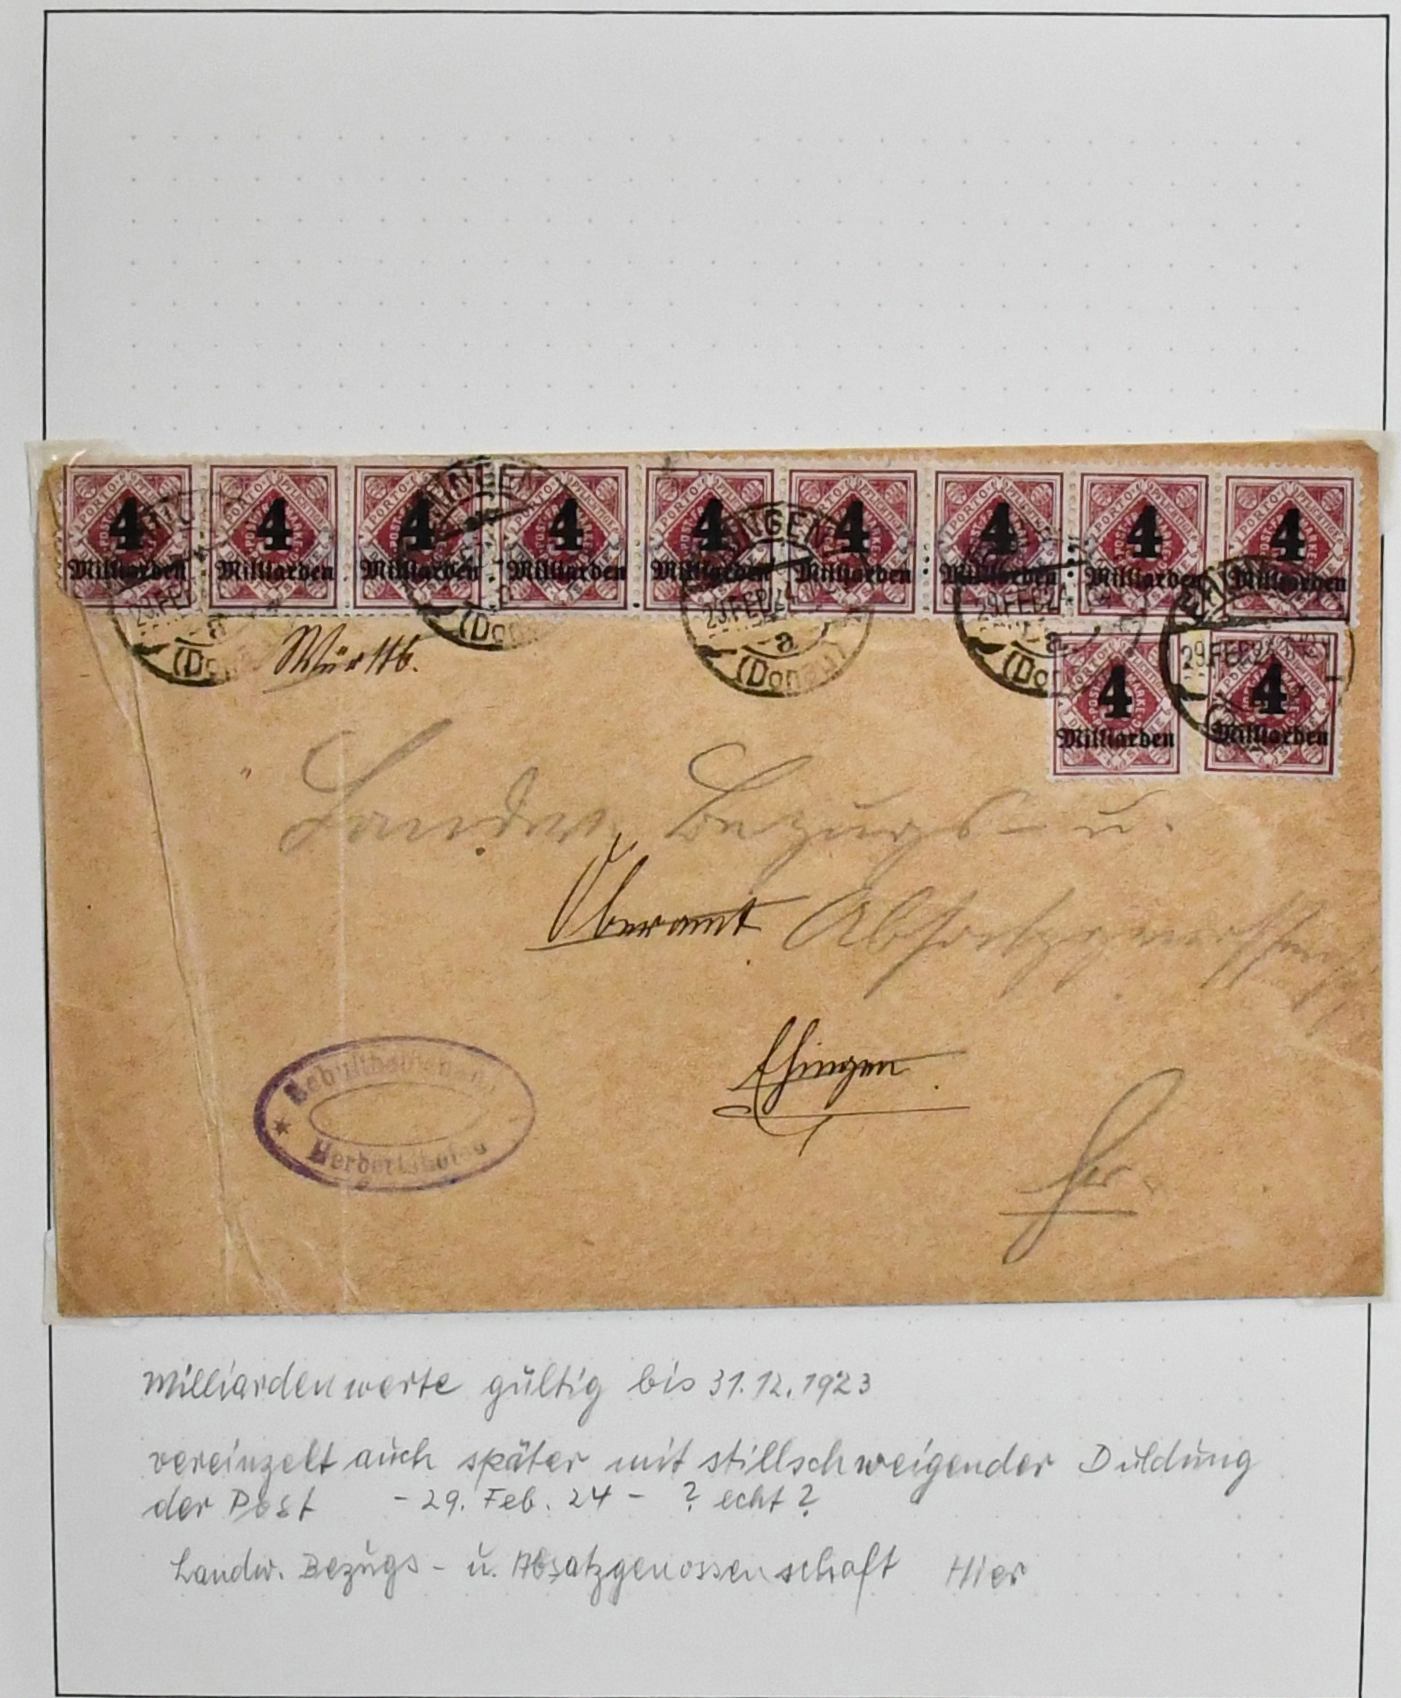 4 4 4 4 4 4 4 4 4
Milliarden Milliarden Milliarden Milliarden Milliarden Milliarden Milliarden Milliarden Milliarden
29.FEB.24
a
(Donau)
4 4
Milliarden Milliarden
Württb.
Landw. Bezugs- u.
Oberamt Absatzgenossenschaft
Ehingen
Hier.
Schultheissenamt
Herbertshofen
Milliardenwerte gültig bis 31.12.1923
vereinzelt auch später mit stillschweigender Duldung
der Post - 29. Feb. 24 - ? echt ?
Landw. Bezugs- u. Absatzgenossenschaft Hier